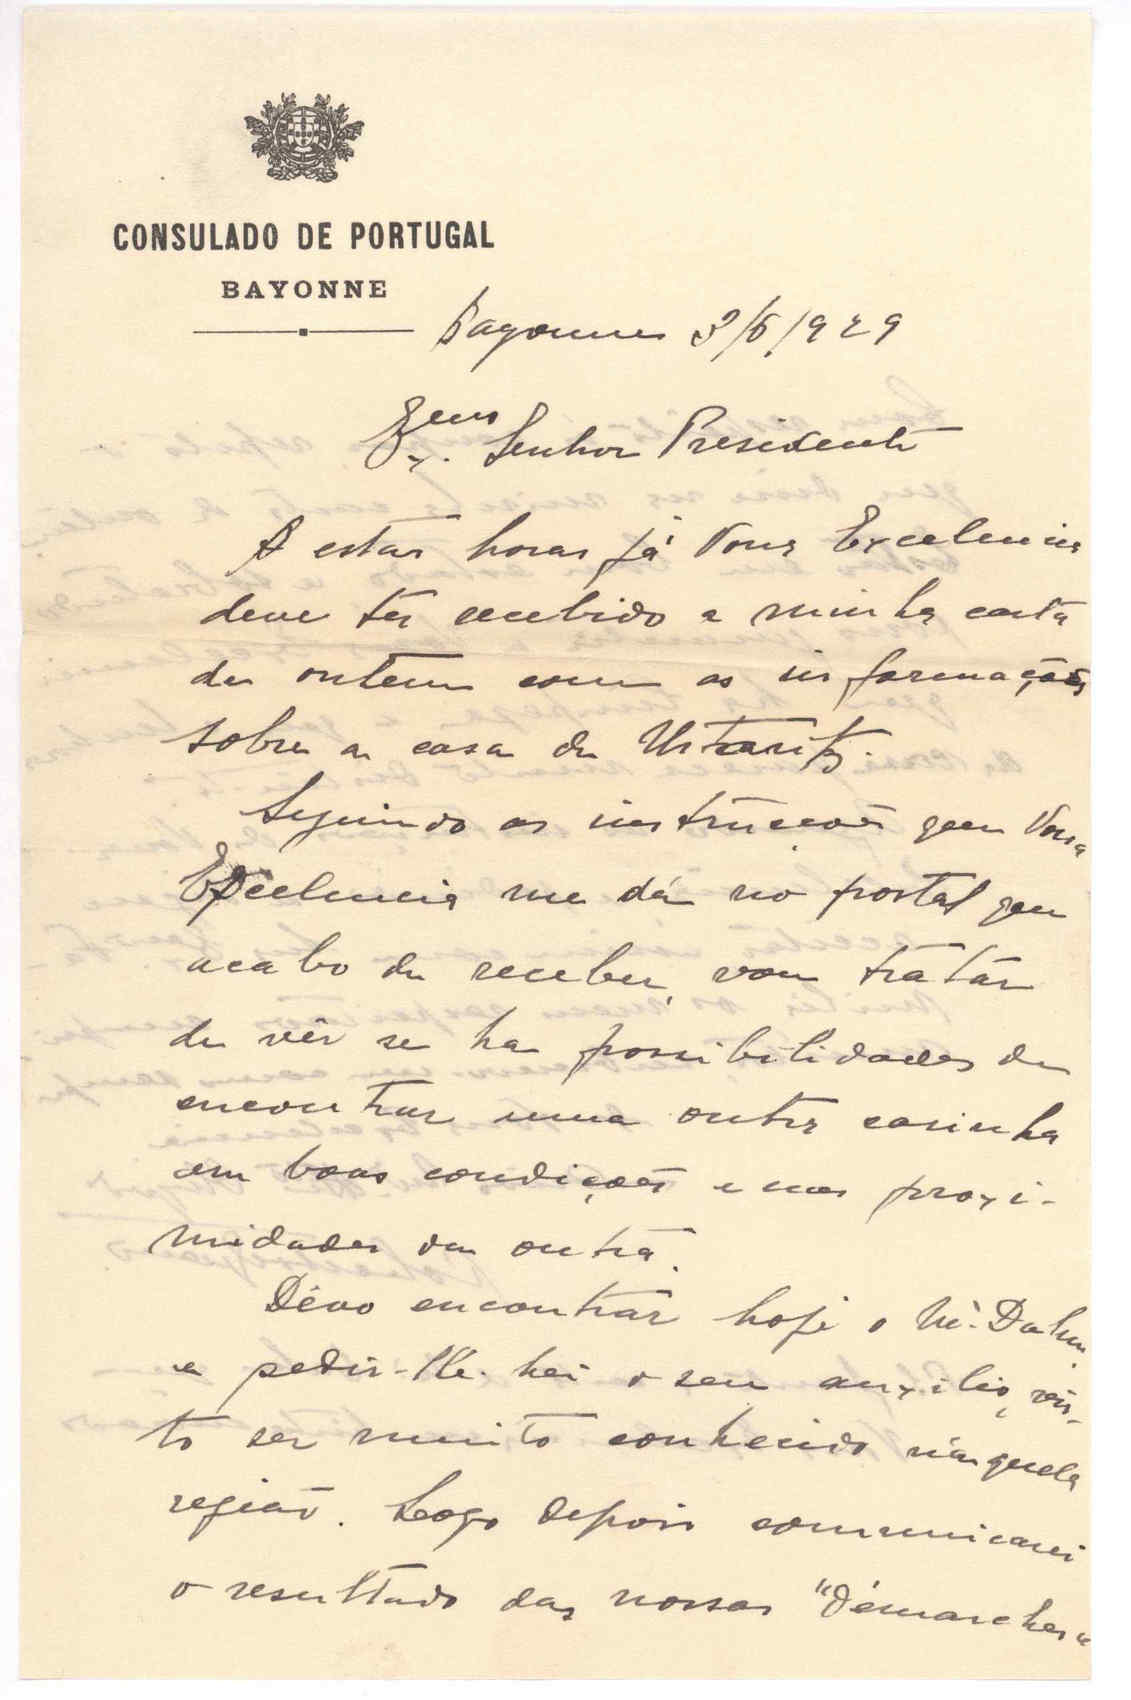 CONSULADO DE PORTUGAL
BAYONNE
Bayonne 3/6/929
Exmo. Senhor Presidente
A estas horas já Vossa Excelencia
deve ter recebido a minha carta
de ontem com as informações
sobre a casa de Ustaritz.
Seguindo as instruções que Vossa
Excelencia me dá no postal que
acabo de receber, vou tratar
de vêr se ha possibilidades de
encontrar uma outra casinha
em boas condições e nas proxi-
midades da outra.
Devo encontrar hoje o Mr.
e pedir-lhe-hei o seu auxilio, vis-
to ser muito conhecido n'aquela
região. Logo depois comunicarei
o resultado das nossas "démarches"